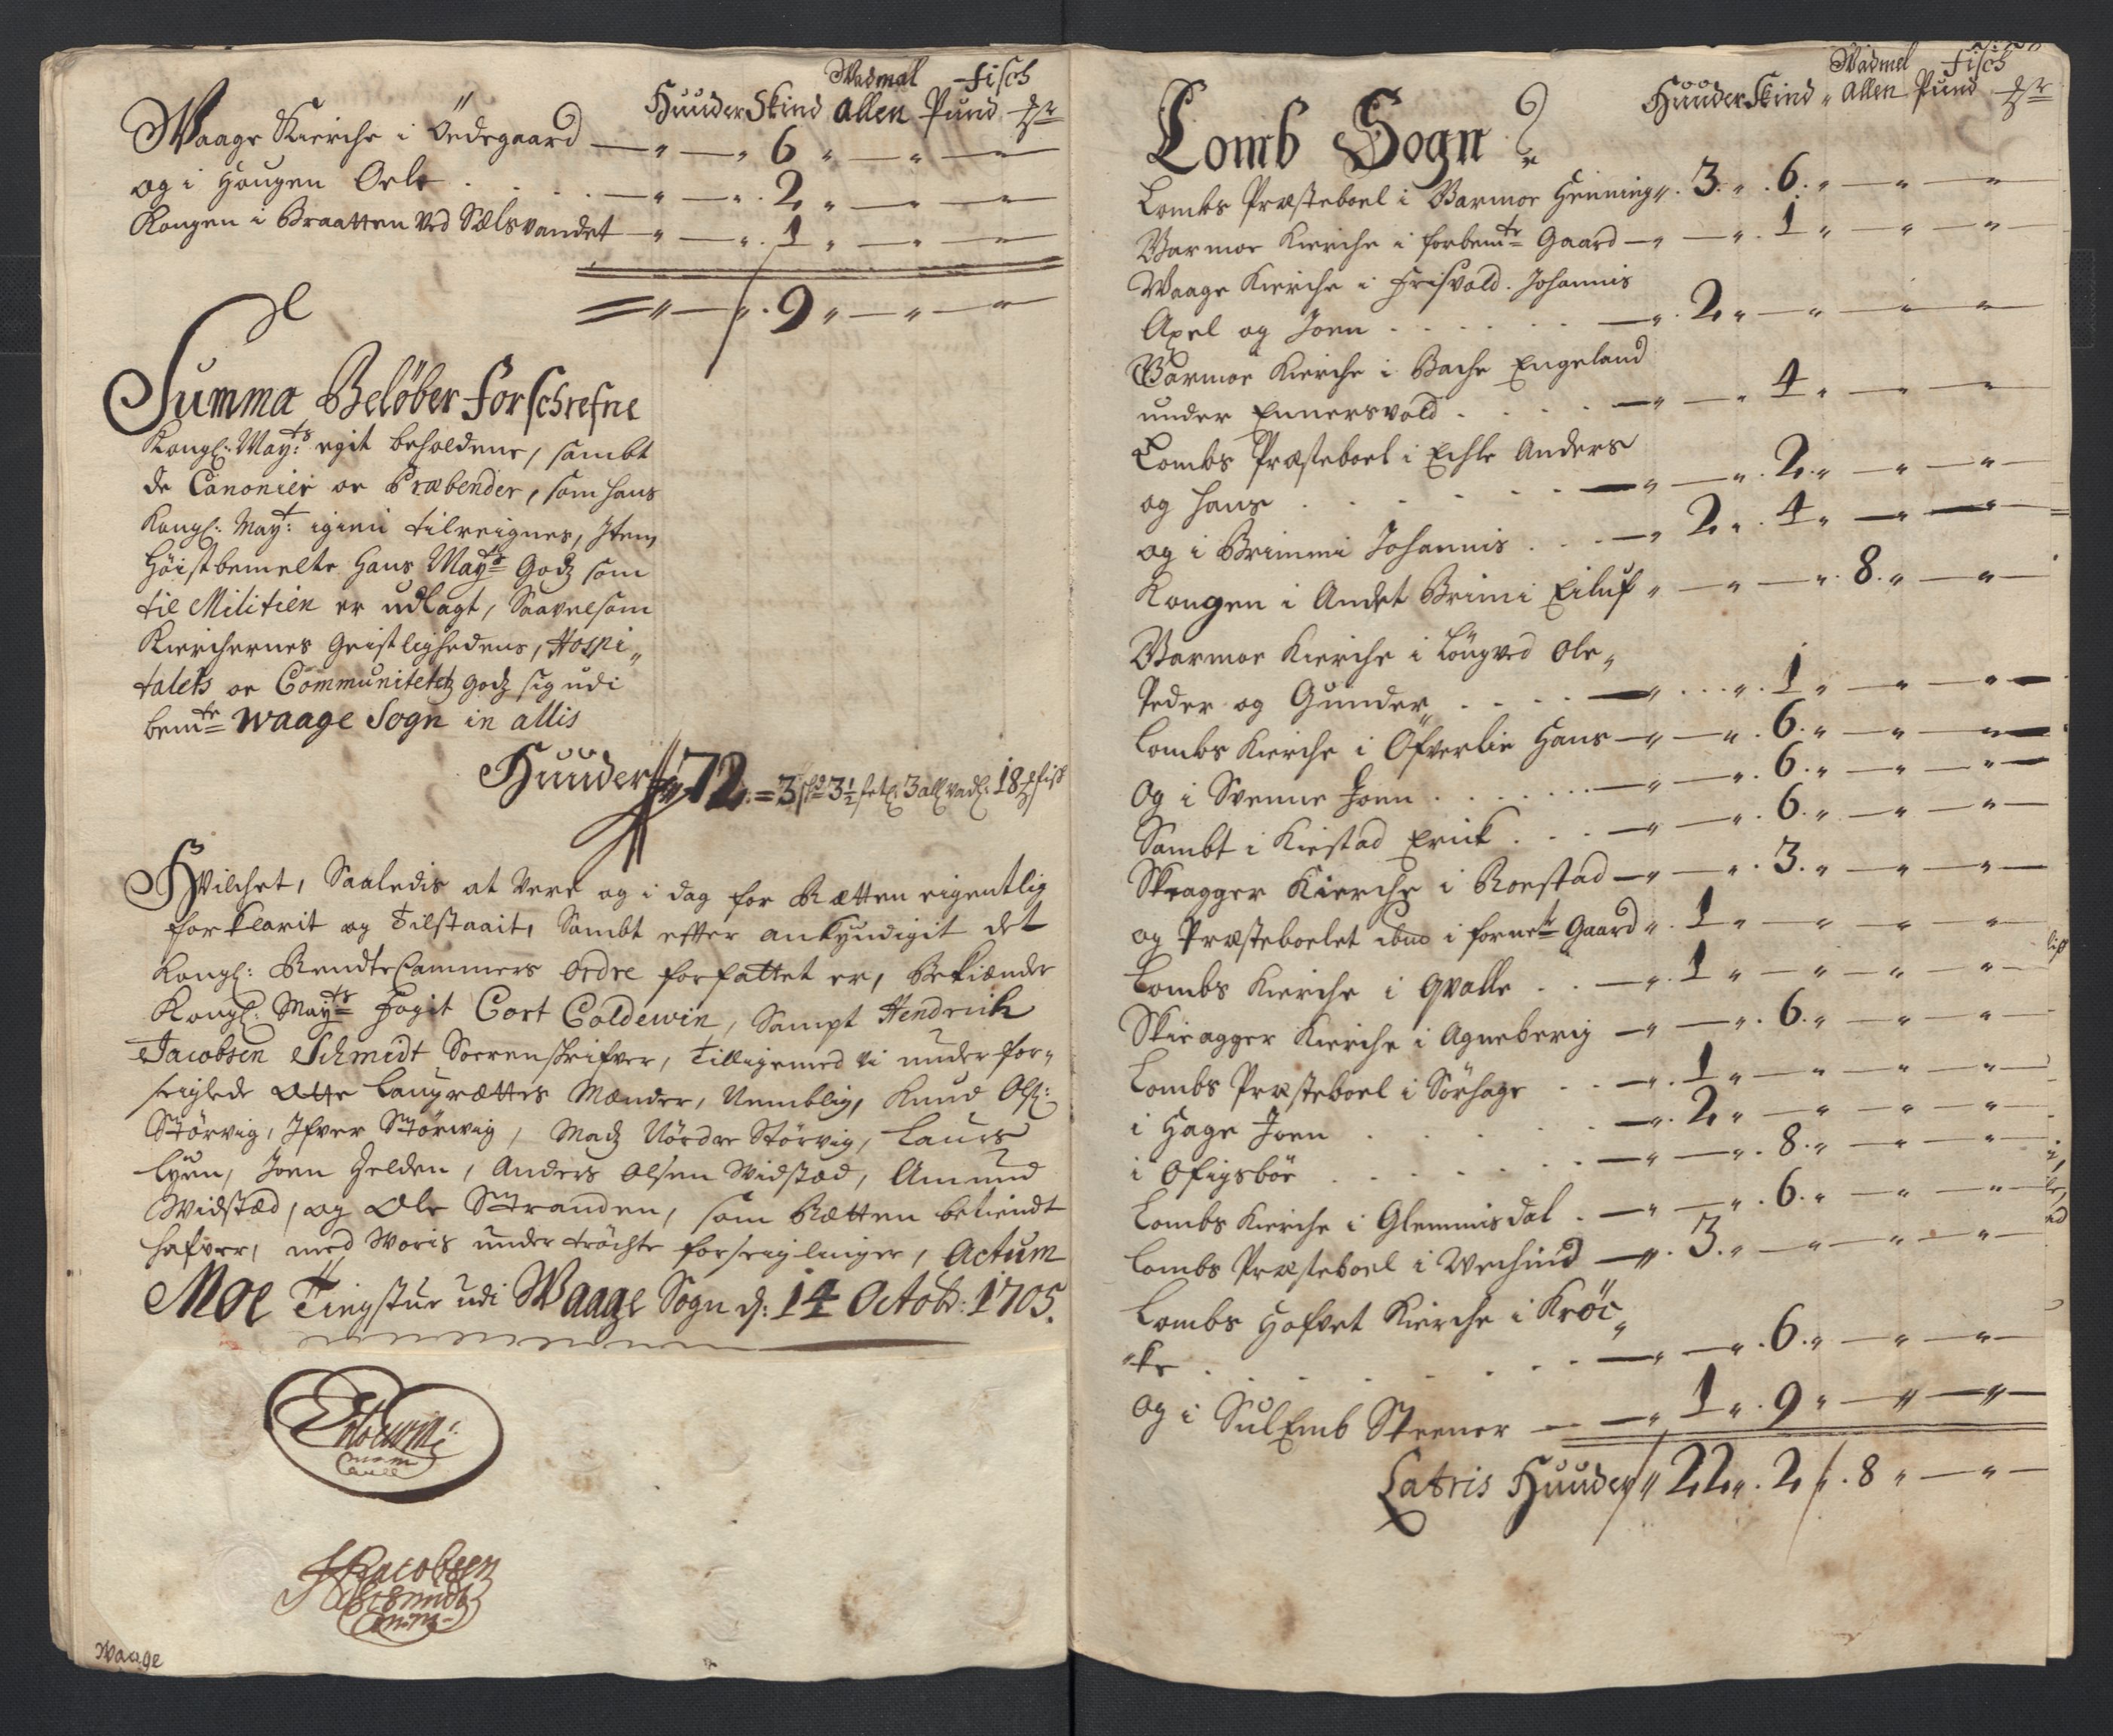 Wadmal Fisch
Huuder Skind Allen Pund
Waage Kierche i Ödegaard — " — " 6 " — " — "
og i Haugen Ole . . . — " — " . 2 " — " — "
Kongen i Braatten ved Sælsvandet — " — " . 1 " — " — "
" — " . 9 " — " — "
Summa Beløber forschrefne
Kongl: Mayts: egit beholdene, sambt
de Canonier oc Præbender, som hans
Kongl: Mayt: igien tilreignes, Item
Høistbemelte Hans Mayts Godz som
til Militien er udlagt, Saavelsom
Kierchernes Geistlighedens, Hospi„
talets oc Communitetz godz sig udi
bemte Waage Sogn in allis
Huuder 72 = 3 3½ 3 all vadl: 18 fisk
Hvilchet, Saaledis at Vere og i dag for Rætten eigentlig
forklarit og Tilstaait, Sambt efter ankyndigit det
Kongl: RendteCammers Ordre forfattet er, Bekiænder
Kongl: Mayts Fogit Cort Coldewin, Sampt Hendrich
Jacobsen Schmidt Sorenskrifver, Tilligemed vi under for„
seiglede Otte Laugrættes Mænder, Nemblig, Knud Ols:
Störvig, Ifver Störwig, Madz Nördre Störvig, Laurs
Lyen, Joen Jelden, Anders Olsen Widstad, Amund
Widstæd, og Ole Stranden, som Rætten betiendt
hafver, med Woris undertröchte forseiglinger, Actum
Moe Tingstue udi Waage Sogn d: 14 Octobr: 1705.
Jacobsen
Schmidt
Waage
Wadmel Fisch
Huuder Skind " Allen Pund
Lomb Sogn
Lombs Præsteboel i Garmoe Henning " . 3 " . 6 " — " — "
Garmoe Kierche i forbemte Gaard — " — " . 1 " — " — "
Waage Kierche i Frisvold. Johannis
Axel og Joen . . . . — " . 2 " — " — " — "
Garmoe Kierche i Bache Engeland
under Ennersvold . . . — " — " 4 " — " — "
Lombs Præsteboel i Echle Anders
og Hans . . . . — " — " . 2 " — " — "
og i Brimmi Johannis . . . — " 2 " . 4 " — " — "
Kongen i Andet Brimi Eiluf " — " — " . 8 " — " —
Garmoe Kierche i Löngved Ole„
Peder og Gunder . . . — " . . . " . 1 " — " — "
Lombs Kierche i Öfverlie Hans — " — " . 6 " — " — "
Og i Svenne Joen . . . . — " — " . 6 " — " — "
Sambt i Kiestad Erick . . . — " — " . 6 " — " — "
Skeagger Kierche i Roestad — " — " . 3 " — " — "
og Præsteboelet ibm i fornete Gaard " . 1 " — " — " — "
Lombs Kierche i Qvalle . . — " . 1 " — " — " — "
Skieagger Kierche i Agneberig — " — " . 6 " — " — "
Lombs Præsteboel i Sörhage . . — " . 1 " — " — " — "
i Hage Joen . . . . — " . 2 " — " — " — "
i Ofigsböe . . . . — " — " . 8 " — " — "
Lombs Kierche i Glemmisdal . — " — " . 6 " — " — "
Lombs Præsteboel i Wechind — " . 3 " — " — " — "
Lombs Hofvet Kierche i Kröc„
„ke . . . . . — " — " . 6 " — " — "
og i SulEmb Steener — — " 1 " . 9 " — " — "
Latris Huuder " 22 " . 2 . 8 " — " —